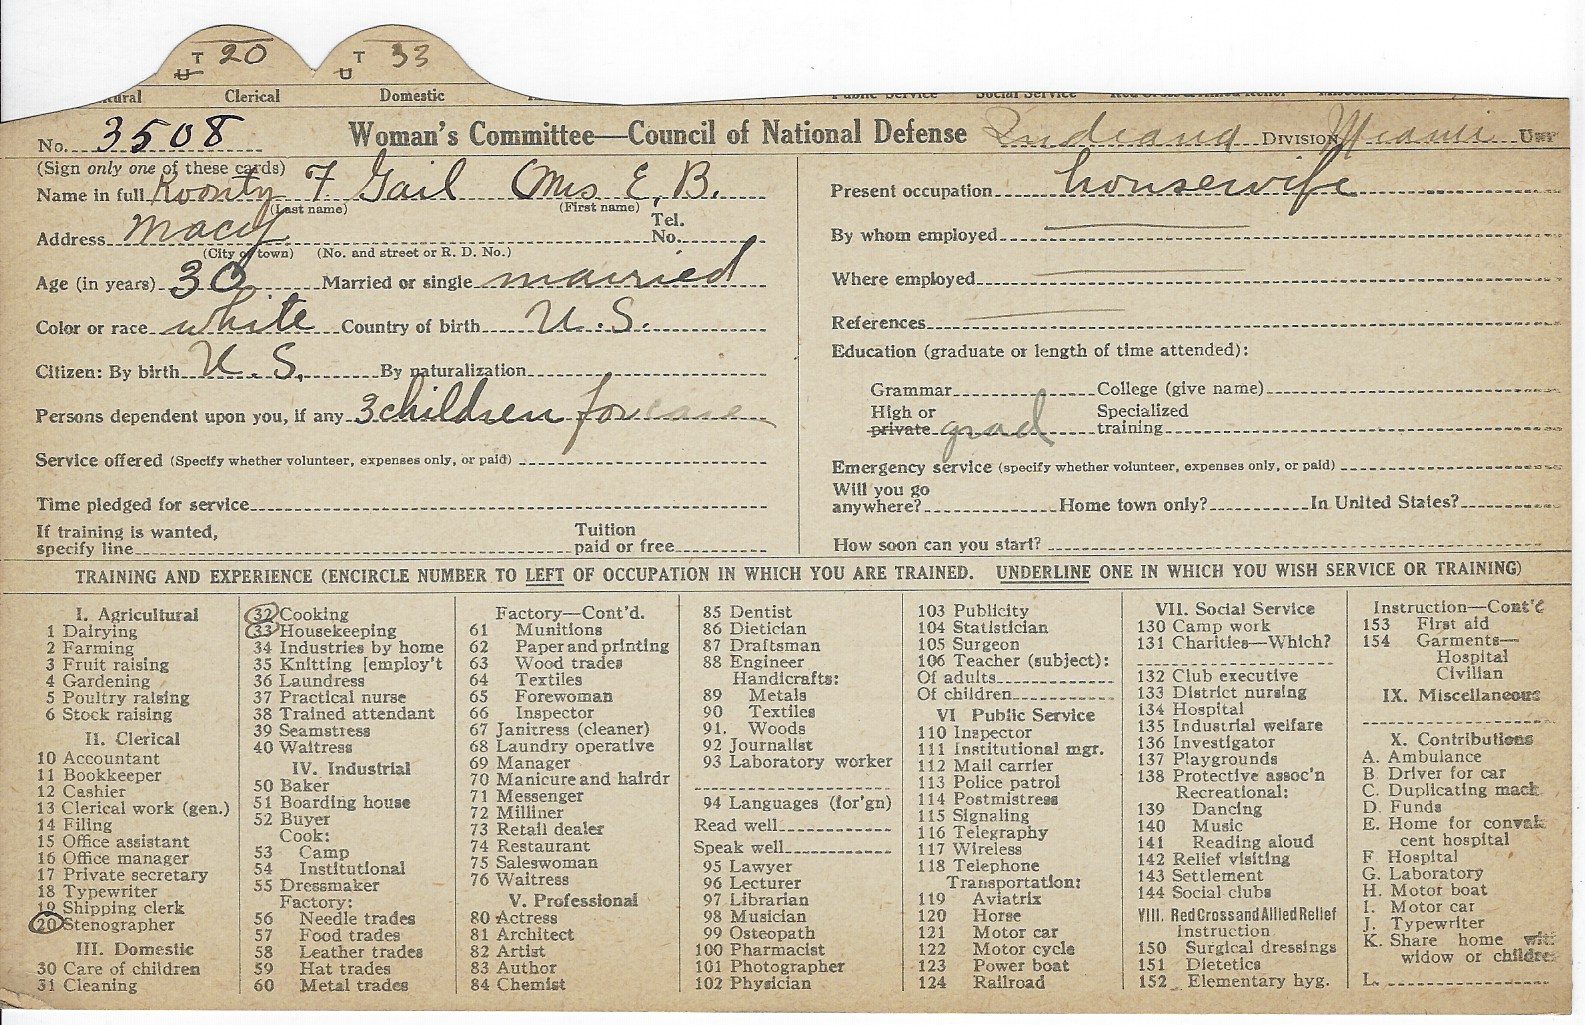 T 20 T 33
U U
Clerical Domestic
No. 3508 Woman's Committee—Council of National Defense Indiana DIVISION Miami UNIT
(Sign only one of these cards)
Name in full Koontz F Gail (Mrs E. B.
(Last name) (First name)
Address Macy Tel. No.
(City or town) (No. and street or R. D. No.)
Age (in years) 30 Married or single married
Color or race white Country of birth U.S.
Citizen: By birth U.S. By naturalization
Persons dependent upon you, if any 3 children for care
Service offered (Specify whether volunteer, expenses only, or paid)
Time pledged for service
If training is wanted,
specify line
Tuition
paid or free
Present occupation housewife
By whom employed
Where employed
References
Education (graduate or length of time attended):
Grammar College (give name)
High or Specialized
private grad training
Emergency service (specify whether volunteer, expenses only, or paid)
Will you go
anywhere? Home town only? In United States?
How soon can you start?
TRAINING AND EXPERIENCE (ENCIRCLE NUMBER TO LEFT OF OCCUPATION IN WHICH YOU ARE TRAINED. UNDERLINE ONE IN WHICH YOU WISH SERVICE OR TRAINING)
I. Agricultural
1 Dairying
2 Farming
3 Fruit raising
4 Gardening
5 Poultry raising
6 Stock raising
II. Clerical
10 Accountant
11 Bookkeeper
12 Cashier
13 Clerical work (gen.)
14 Filing
15 Office assistant
16 Office manager
17 Private secretary
18 Typewriter
19 Shipping clerk
20 Stenographer
III. Domestic
30 Care of children
31 Cleaning
32 Cooking
33 Housekeeping
34 Industries by home
35 Knitting [employ't
36 Laundress
37 Practical nurse
38 Trained attendant
39 Seamstress
40 Waitress
IV. Industrial
50 Baker
51 Boarding house
52 Buyer
Cook:
53 Camp
54 Institutional
55 Dressmaker
Factory:
56 Needle trades
57 Food trades
58 Leather trades
59 Hat trades
60 Metal trades
Factory—Cont'd.
61 Munitions
62 Paper and printing
63 Wood trades
64 Textiles
65 Forewoman
66 Inspector
67 Janitress (cleaner)
68 Laundry operative
69 Manager
70 Manicure and hairdr
71 Messenger
72 Milliner
73 Retail dealer
74 Restaurant
75 Saleswoman
76 Waitress
V. Professional
80 Actress
81 Architect
82 Artist
83 Author
84 Chemist
85 Dentist
86 Dietician
87 Draftsman
88 Engineer
Handicrafts:
89 Metals
90 Textiles
91. Woods
92 Journalist
93 Laboratory worker
94 Languages (for'gn)
Read well
Speak well
95 Lawyer
96 Lecturer
97 Librarian
98 Musician
99 Osteopath
100 Pharmacist
101 Photographer
102 Physician
103 Publicity
104 Statistician
105 Surgeon
106 Teacher (subject):
Of adults
Of children
VI Public Service
110 Inspector
111 Institutional mgr.
112 Mail carrier
113 Police patrol
114 Postmistress
115 Signaling
116 Telegraphy
117 Wireless
118 Telephone
Transportation:
119 Aviatrix
120 Horse
121 Motor car
122 Motor cycle
123 Power boat
124 Railroad
VII. Social Service
130 Camp work
131 Charities—Which?
132 Club executive
133 District nursing
134 Hospital
135 Industrial welfare
136 Investigator
137 Playgrounds
138 Protective assoc'n
Recreational:
139 Dancing
140 Music
141 Reading aloud
142 Relief visiting
143 Settlement
144 Social clubs
VIII. Red Cross and Allied Relief
Instruction
150 Surgical dressings
151 Dietetics
152 Elementary hyg.
Instruction—Cont'd
153 First aid
154 Garments—
Hospital
Civilian
IX. Miscellaneous
X. Contributions
A. Ambulance
B Driver for car
C. Duplicating mach
D. Funds
E. Home for conval
cent hospital
F. Hospital
G. Laboratory
H. Motor boat
I. Motor car
J. Typewriter
K. Share home with
widow or childre
L.